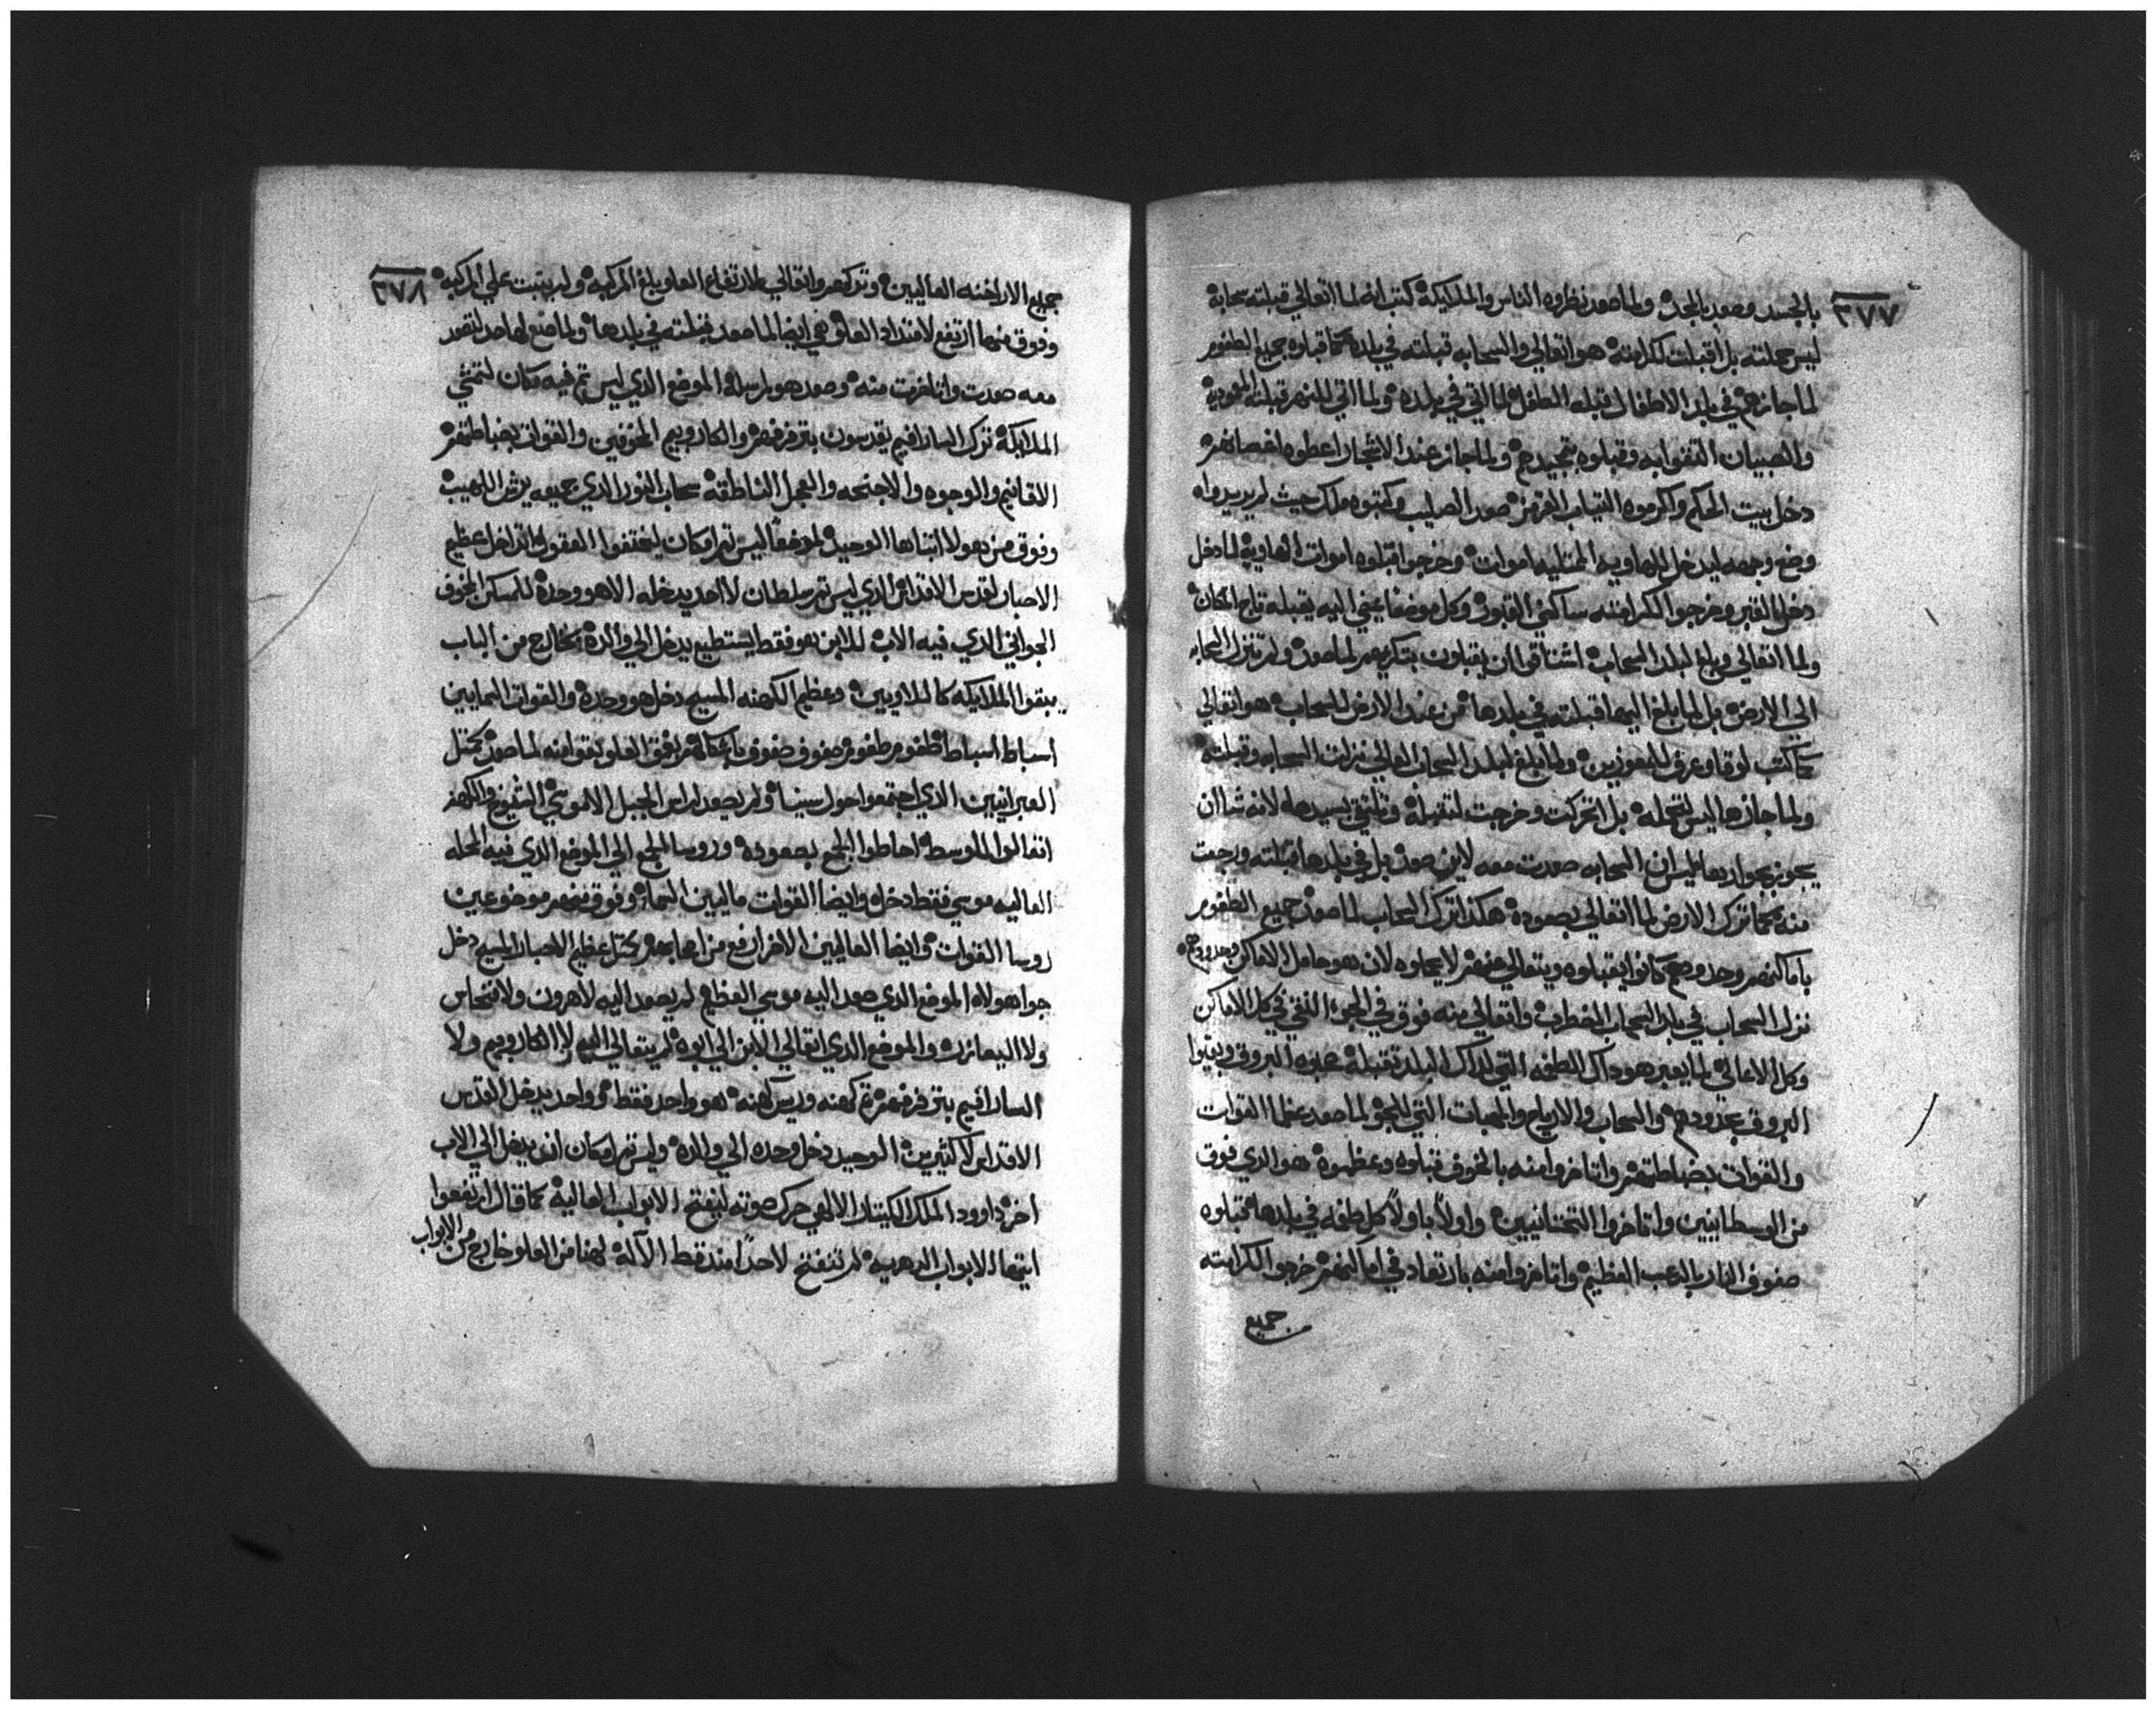 ٣٧٧
بالجسد وصعد بالمجد ولما صعد نظروه الناس والملايكة كتب انه لما اتعالي قبلته سحابة
ليس حملته بل اقبلت لكرامته هو اتعالي والسحابه قبلته في بلده كما قبلوه جميع الطغوم
لما جاز بهم في بلد الاطفال قبله الطفل لما اتي في بلده ولما اتي للنهر قبلته المعمودية
والصبيان التقوا به وقبلوه بتمجيدهم ولما جاز عند الاشجار اعطوه اغصانهم
دخل بيت الحكم واكرموه الثياب القرمز صعد الصليب وكتبوه ملك حيث لم يريدواه
وضع وجهه ليدخل للهاويه الممتليه اموات وخرجوا قبلوه اموات الهاوية لما دخل
دخل القبر وخرجوا لكرامته ساكني القبور وكل موضعا عني اليه يقبله تاج المكان
ولما اتعالي وبلغ لبلد السحاب اشتاقوا ان يقبلون بتكريمهم لما صعد ولم تنزل السحابه
الي الارض بل لما بلغ اليها قبلته في بلدها من عند الارض للسحاب هو اتعالي
كما كتب لوقا وعرف للمفوزين ولما بلغ لبلد السحاب العالي نزلت السحابه وقبلته
ولما جازها ليس لتحمله بل اتحركت وخرجت لتقبله وتلتقي بسيدها لانه شاان
يجوز بجوارها ليس ان السحابه صعدت معه لاين صعد بل في بلدها قبلته ورجعت
منه كما ترك الارض لما اتعالي بصعوده هكذا ترك السحاب لما صعد جميع الطغوم
باماكنهم وحدودهم كانوا يقبلوه ويتعالي عنهم لا يحملوه لان هو حامل الاماكن وحدودهم
نزل السحاب في بلد السحاب الخطاب واتعالي منه فوق في الجو النقي في كل الاماكن
وكل الاعالي لما يعبر هو ذاك الطغمه التي لذاك البلد تقبله عبوه البروق وبقيوا
البروق بحدودهم والسحاب والارياح والمهبات التي للجو لما صعد عنها القوات
والقوات بضباطتهم واتاخروا منه بالخوف قبلوه وعظموه هو الذي فوق
من الوسطانيين واتاخروا التحتانيين واولاً باولاً كل طغمه في بلدها قبلوه
صفوف النار بالرعب العظيم واتاخروا منه بارتعاد في اماكنهم خرجوا لكرامته
جميع
٣٧٨
جميع الاراخنه العاليين وتركهم واتعالي للارتفاع العلو وبلغ المركبه ولم يثبت علي المركبه
وفوق منها ارتفع لامتداد العلو هي ايضا لما صعد قبلته في بلدها ولما صنع لها حد لتصعد
معه صعدت واتاخرت منه وصعد هو لمرسله الموضع الذي ليس ثم فيه مكان لتمشي
الملايكة ترك السارافيم يقدسون بترفرفهم والكاروبيم المخوفين والقوات بضباطتهم
الاقانيم والوجوه والاجنحه والعجل الناطقة سحاب النور الذي جميعه يرش اللهيب
وفوق من هولا ابتناها الوحيد لموضعاً ليس ثم امكان ليقتفوا العقول اتداخل عظيم
الاحبار لقدس الاقداس الذي ليس ثم سلطان لااحد يدخله الا هو وحده للمسكن المخوف
الجواني الذي فيه الاب للابن هو فقط يستطيع يدخل الي والده خارج من الباب
يبقوا الملايكه كاللاويين وعظيم الكهنه المسيح دخل هو وحده والقوات السمايين
اسباط اسباط طغوم طغوم صفوف صفوف باماكنهم بافق العلو بقوا منه لما صعد كمثل
العبرانيين الذي اجتمعوا حول سينا ولم يصعد لراس الجبل الا موسي الشيوخ والكهنه
اتعالوا للوسط احاطوا الجمع بصعوده وروسا الجمع الي الموضع الذي فيه المحله
العاليه موسي فقط دخله وايضا القوات ماليين السماء وفوق منهم موضوعين
روسا القوات وايضا العاليين الاخر ارفع من اصحابهم كمثل عظيم الاحبار المسيح دخل
جوا هولاء الموضع الذي صعد اليه موسي العظيم لم يصعد اليه لا هرون ولا فنحاس
ولا اليعازر والموضع الذي اتعالي الابن الي ابوه لم يتعالي اليه لا الكاروبيم ولا
السارافيم بترفرفهم ثم كهنه وريس كهنه هو واحد فقط وواحد يدخل القدس
الاقداس لا كثيرين الوحيد دخل وحده الي والده وليس ثم امكان اخر يدخل الي الاب
اخر داوود الملك الكيتار الالهي حرك صوته ليفتح الابواب العالية كما قال ارتفعوا
ايتها الابواب الدهريه لم تنفتح لاحداً منذ قط الآله لهنا من العلو خارج من الابواب